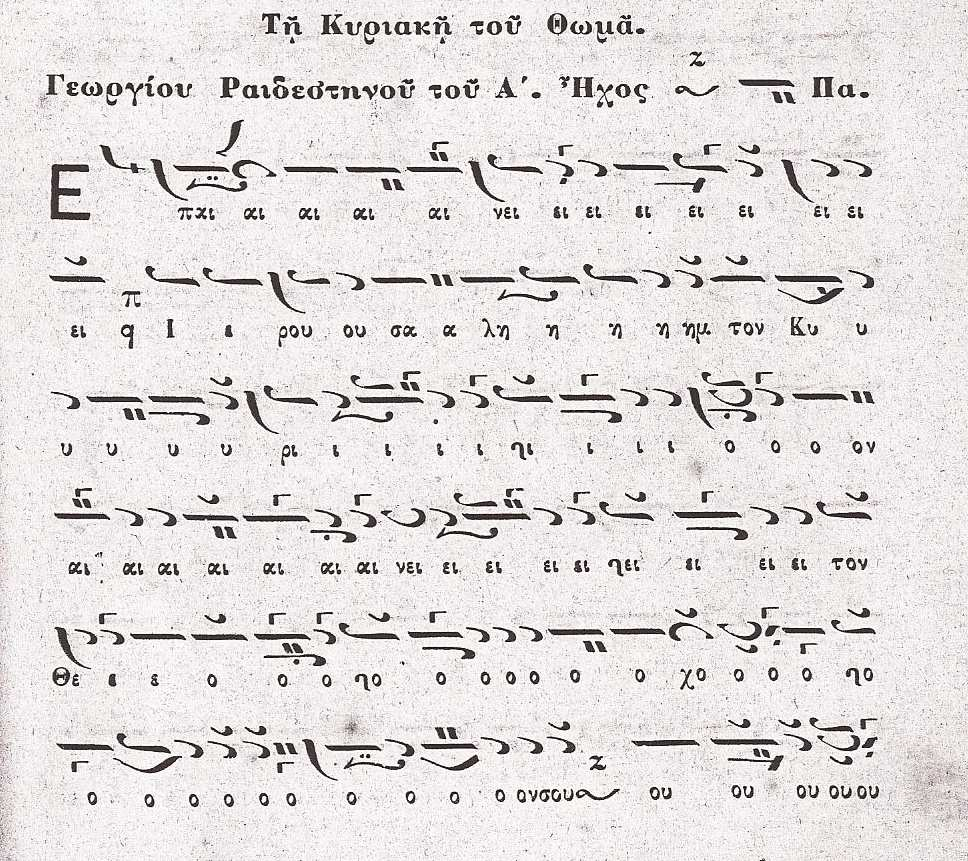 Τῇ Κυριακῇ τοῦ Θωμᾶ.
Γεωργίου Ραιδεστηνοῦ τοῦ Α΄. Ἦχος Πα.
Ε παι αι αι αι αι νει ει ει ει ει ει ει ει
ει π q Ι ε ρου ου σα α λη η η η ημ τον Κυ υ
υ υ υ υ ρι ι ι ι ι ηι ι ι ι ο ο ο ον
αι αι αι αι αι αι αι νει ει ει ει ει ηει ει ει ει τον
Θε ε ε ο ο ο ηο ο ο ο ο ο ο χο ο ο ο ηο
ο ο ο ο ο ο ο ο ο ο ονσου ου ου ου ου ου